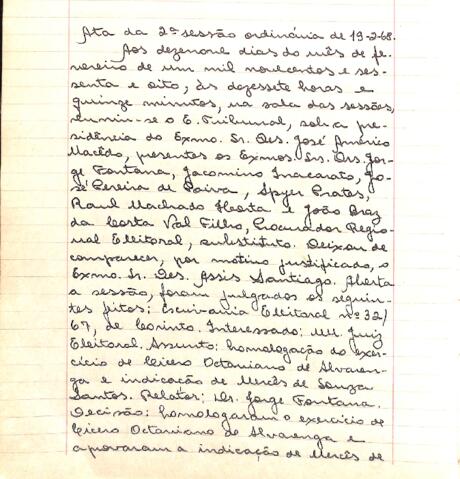 Ata da 2ª sessão ordinária de 19-2-68.
Aos dezenove dias do mês de fe-
vereiro de um mil novecentos e ses-
senta e oito, às dezessete horas e
quinze minutos, na sala das sessões,
reuniu-se o E. Tribunal, sob a pre-
sidência do Exmo. Sr. Des. José Américo
Macêdo, presentes os Exmos. Srs. Drs. Jor-
ge Fontana, Jacomino Inacarato, Jo-
sé Pereira de Paiva, Spyer Prates,
Raul Machado Horta e João Braz
da Costa Val Filho, Procurador Regio-
nal Eleitoral, substituto. Deixou de
comparecer, por motivo justificado, o
Exmo. Sr. Des. Assis Santiago. Aberta
a sessão, foram julgados os seguin-
tes feitos: Escrivania Eleitoral nº 32/
67, de Corinto. Interessado: MM. Juiz
Eleitoral. Assunto: homologação do exer-
cício de Cícero Octaviano de Alvaren-
ga e indicação de Mercês de Souza
Santos. Relator: Dr. Jorge Fontana.
Decisão: homologaram o exercício de
Cícero Octaviano de Alvarenga e
aprovaram a indicação de Mercês de